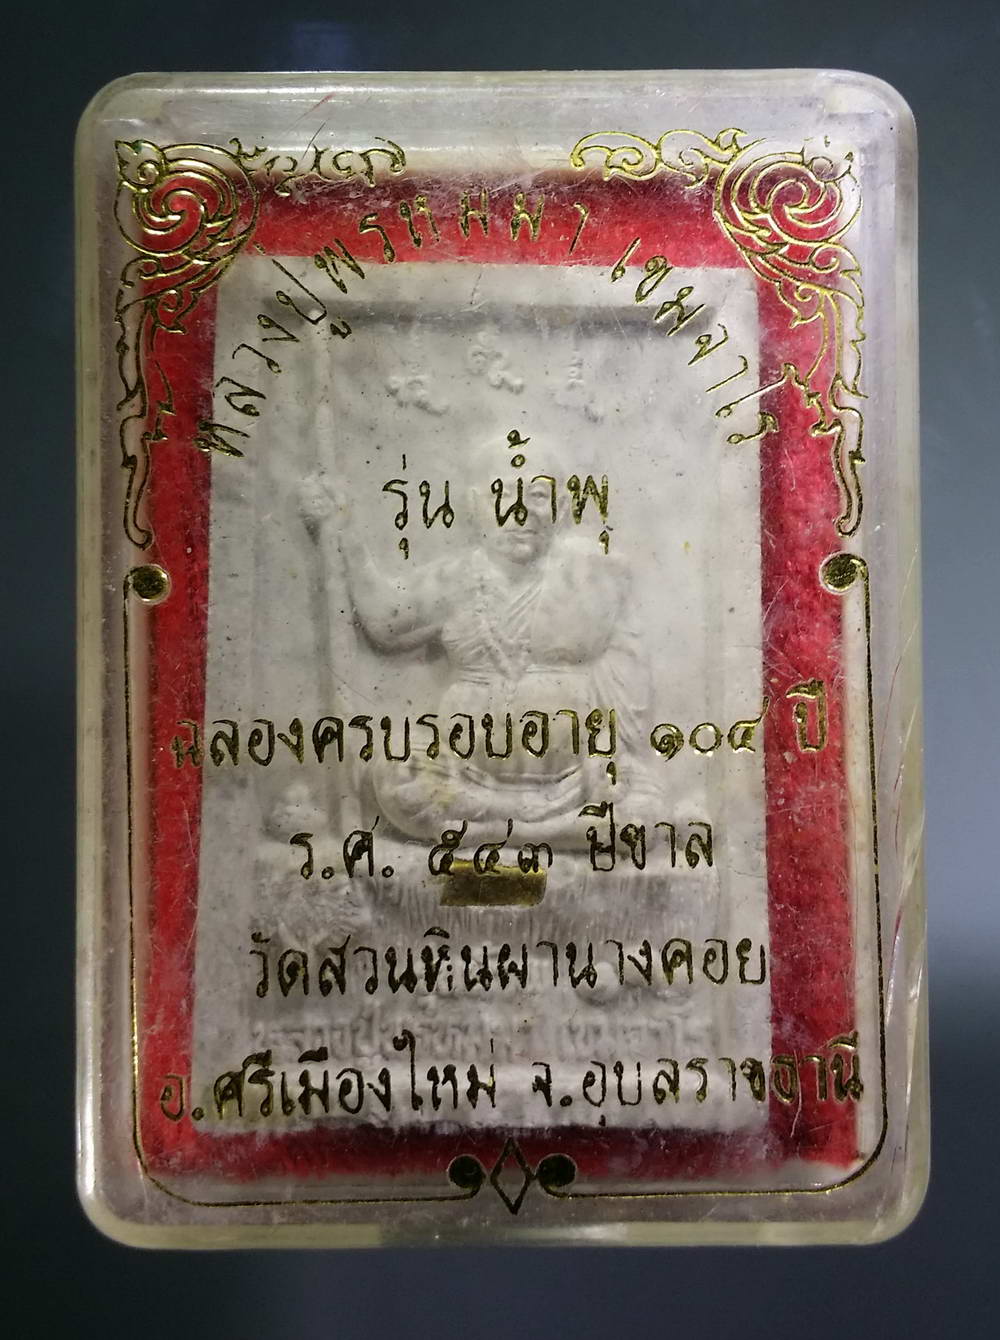 หลวงปู่พรหมมา เขมจาโร
รุ่น น้ำพุ
ฉลองครบรอบอายุ ๑๐๔ ปี
ร.ศ. ๕๔๓ ปีขาล
วัดสวนหินผานางคอย
อ.ศรีเมืองใหม่ จ.อุบลราชธานี